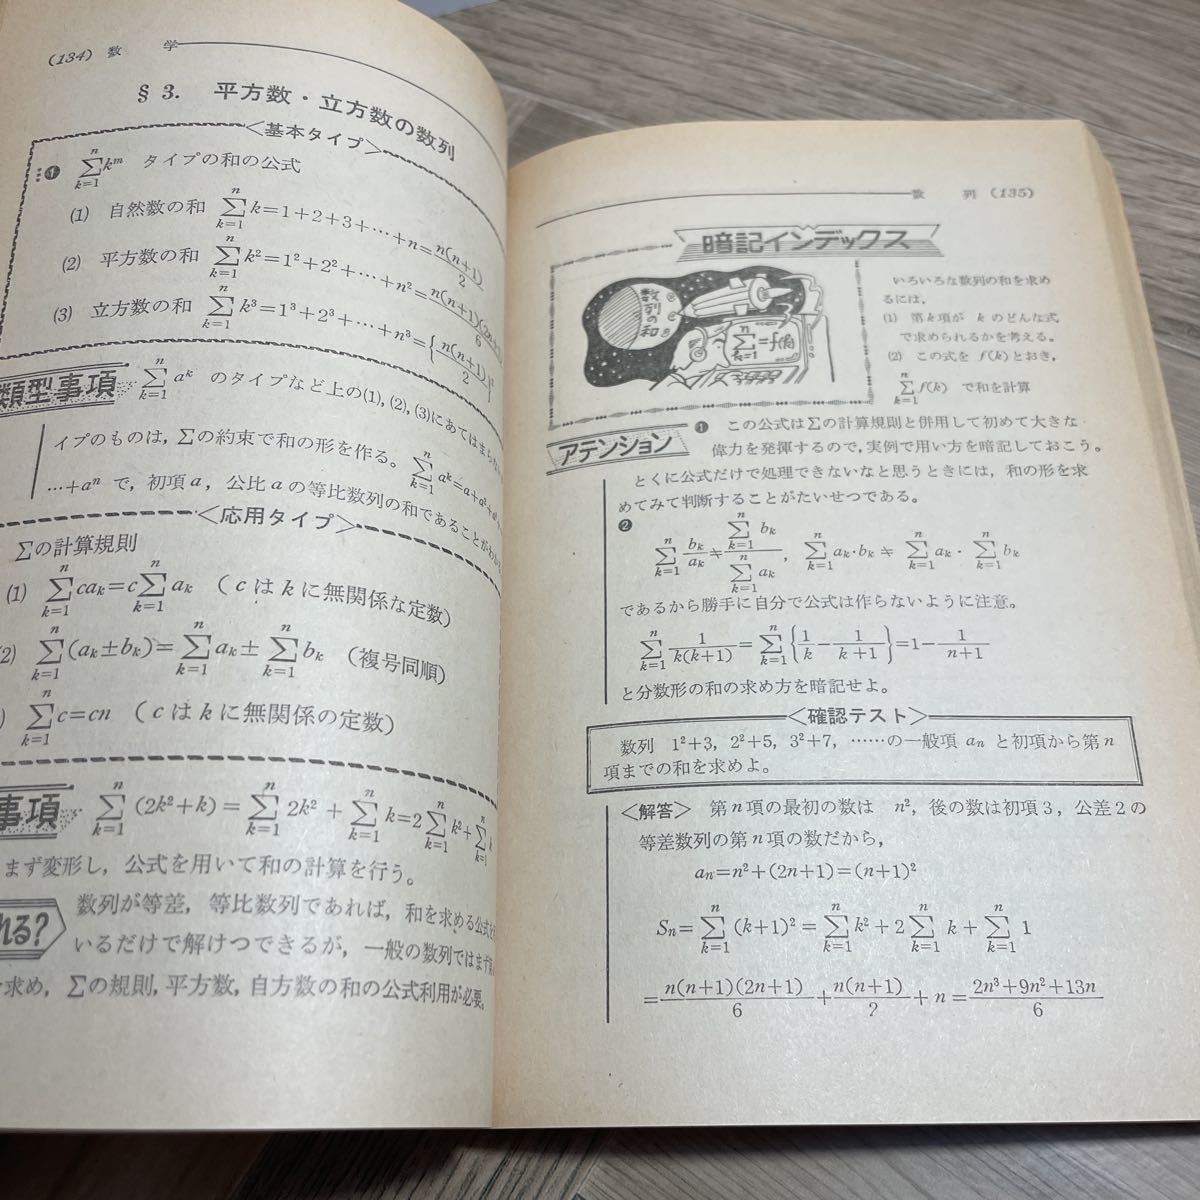 (134) 数 学
§3. 平方数・立方数の数列
<基本タイプ>
❶ \sum_{k=1}^{n} k^m タイプの和の公式
(1) 自然数の和 \sum_{k=1}^{n} k=1+2+3+…+n=\frac{n(n+1)}{2}
(2) 平方数の和 \sum_{k=1}^{n} k²=1²+2²+…+n²=\frac{n(n+1)(2n+}{6}
(3) 立方数の和 \sum_{k=1}^{n} k³=1³+2³+…+n³={\frac{n(n+1)}{2}
類型事項 \sum_{k=1}^{n} a^k のタイプなど上の(1), (2), (3)にあてはまらない
イプのものは, Σの約束で和の形を作る。 \sum_{k=1}^{n} a^k=a+a²+
…+a^n で, 初項 a, 公比 a の等比数列の和であることが
<応用タイプ>
Σの計算規則
(1) \sum_{k=1}^{n} ca_k=c\sum_{k=1}^{n} a_k (c は k に無関係な定数)
2) \sum_{k=1}^{n} (a_k±b_k)=\sum_{k=1}^{n} a_k±\sum_{k=1}^{n} b_k (複号同順)
) \sum_{k=1}^{n} c=cn (c は k に無関係の定数)
事項 \sum_{k=1}^{n} (2k²+k)=\sum_{k=1}^{n} 2k²+\sum_{k=1}^{n} k=2\sum_{k=1}^{n} k²+\sum_{k=1}^{n} k
まず変形し, 公式を用いて和の計算を行う。
れる? 数列が等差, 等比数列であれば, 和を求める公式を
いるだけで解けつできるが, 一般の数列ではまず
求め, Σの規則, 平方数, 自方数の和の公式利用が必要。
数 列 (135)
暗記インデックス
数列の和
\sum_{k=1}^{n}=f(k)
いろいろな数列の和を求め
るには,
(1) 第k項が k のどんな式
で求められるかを考える。
(2) この式を f(k) とおき,
\sum_{k=1}^{n} f(k) で和を計算
アテンション
❶ この公式はΣの計算規則と併用して初めて大きな
偉力を発揮するので, 実例で用い方を暗記しておこう。
とくに公式だけで処理できないなと思うときには, 和の形を求
めてみて判断することがたいせつである。
❷
\sum_{k=1}^{n} \frac{b_k}{a_k}≠\frac{\sum_{k=1}^{n} b_k}{\sum_{k=1}^{n} a_k}, \sum_{k=1}^{n} a_k・b_k≠\sum_{k=1}^{n} a_k・\sum_{k=1}^{n} b_k
であるから勝手に自分で公式は作らないように注意。
\sum_{k=1}^{n} \frac{1}{k(k+1)}=\sum_{k=1}^{n} {\frac{1}{k}-\frac{1}{k+1}}=1-\frac{1}{n+1}
と分数形の和の求め方を暗記せよ。
<確認テスト>
数列 1²+3, 2²+5, 3²+7, ……の一般項 a_n と初項から第 n
項までの和を求めよ。
<解答> 第 n 項の最初の数は n², 後の数は初項 3, 公差 2 の
等差数列の第 n 項の数だから,
a_n=n²+(2n+1)=(n+1)²
S_n=\sum_{k=1}^{n} (k+1)²=\sum_{k=1}^{n} k²+2\sum_{k=1}^{n} k+\sum_{k=1}^{n} 1
=\frac{n(n+1)(2n+1)}{6}+\frac{n(n+1)}{2}+n=\frac{2n³+9n²+13n}{6}